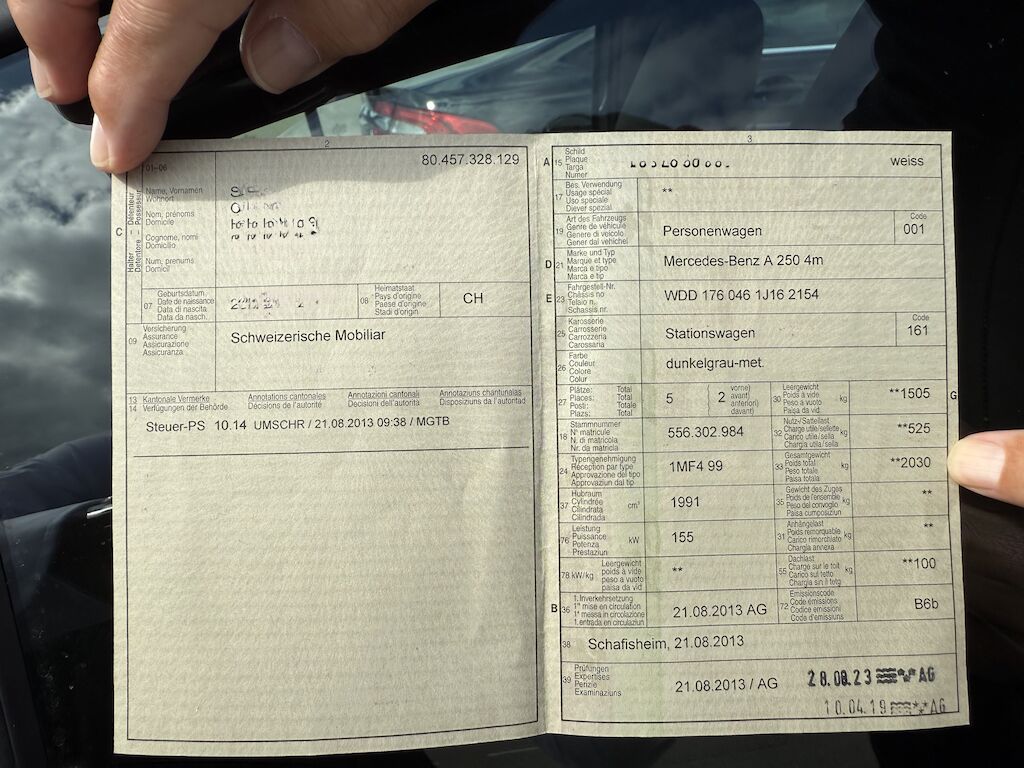 2
80.457.328.129
01-06
C
Halter Détenteur
Detentore Possessur
Name, Vornamen
Wohnort
Nom, prénoms
Domicile
Cognome, nomi
Domicilio
Num, prenums
Domicil
07
Geburtsdatum.
Date de naissance
Data di nascita
Data da nasch.
08
Heimatstaat
Pays d'origine
Paese d'origine
Stadi d'origin
CH
09
Versicherung
Assurance
Assicurazione
Assicuranza
Schweizerische Mobiliar
13 Kantonale Vermerke Annotations cantonales Annotazioni cantonali Annotaziuns chantunalas
14 Verfügungen der Behörde Décisions de l'autorité Decisioni dell'autorità Disposiziuns da l'autoritad
Steuer-PS 10.14 UMSCHR / 21.08.2013 09:38 / MGTB
3
A 15
Schild
Plaque
Targa
Numer
weiss
17
Bes. Verwendung
Usage spécial
Uso speciale
Diever spezial
**
19
Art des Fahrzeugs
Genre de véhicule
Genere di veicolo
Gener dal vehichel
Personenwagen
Code
001
D 21
Marke und Typ
Marque et type
Marca e tipo
Marca e tip
Mercedes-Benz A 250 4m
E 23
Fahrgestell-Nr.
Châssis no
Telaio n.
Schassis nr.
WDD 176 046 1J16 2154
25
Karosserie
Carrosserie
Carrozzeria
Carossaria
Stationswagen
Code
161
26
Farbe
Couleur
Colore
Colur
dunkelgrau-met.
27
Plätze: Total
Places: Total
Posti: Totale
Plazs: Total
5
2
vorne)
avant)
anteriori)
davant)
30
Leergewicht
Poids à vide
Peso a vuoto
Paisa da vid
kg
**1505
G
18
Stammnummer
N° matricule
N. di matricola
Nr. da matricla
556.302.984
32
Nutz-/Sattellast
Charge utile/sellette
Carico utile/sella
Chargia utila/sella
kg
**525
24
Typengenehmigung
Réception par type
Approvazione del tipo
Approvaziun dal tip
1MF4 99
33
Gesamtgewicht
Poids total
Peso totale
Paisa totala
kg
**2030
37
Hubraum
Cylindrée
Cilindrata
Cilindrada
cm³
1991
35
Gewicht des Zuges
Poids de l'ensemble
Peso del convoglio
Paisa cumposiziun
kg
**
76
Leistung
Puissance
Potenza
Prestaziun
kW
155
31
Anhängelast
Poids remorquable
Carico rimorchiato
Chargia annexa
kg
**
78 kW/kg
Leergewicht
poids à vide
peso a vuoto
paisa da vid
**
55
Dachlast
Charge sur le toit
Carico sul tetto
Chargia sin il tetg
kg
**100
B 36
1. Inverkehrsetzung
1re mise en circulation
1a messa in circolazione
1. entrada en circulaziun
21.08.2013 AG
72
Emissionscode
Code émissions
Codice emissioni
Code d'emissiuns
B6b
38
Schafisheim, 21.08.2013
39
Prüfungen
Expertises
Perizie
Examinaziuns
21.08.2013 / AG
28.08.23 AG
10.04.19 AG